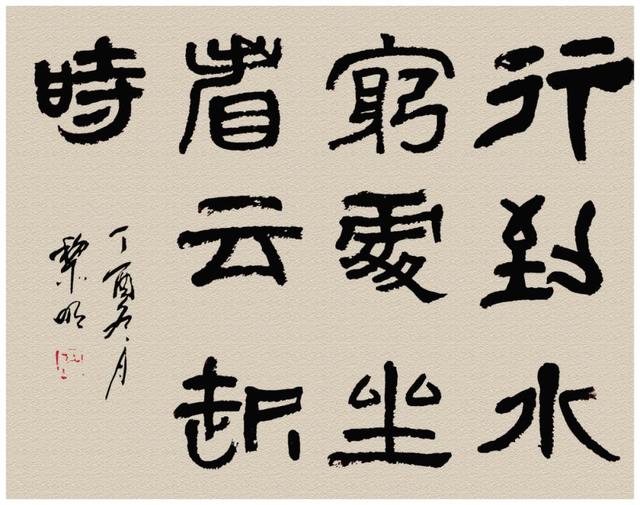 行到水
窮處坐
看云起
時
丁酉九月
黎明